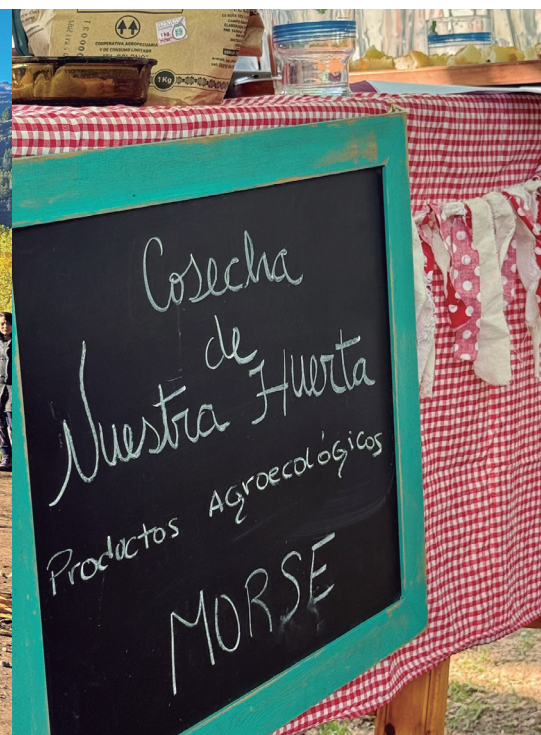 COOPERATIVA AGROPECUARIA
Y DE CONSUMO LIMITADO
1 Kg
Cosecha
de
Nuestra Huerta
Productos Agroecológicos
MORSE